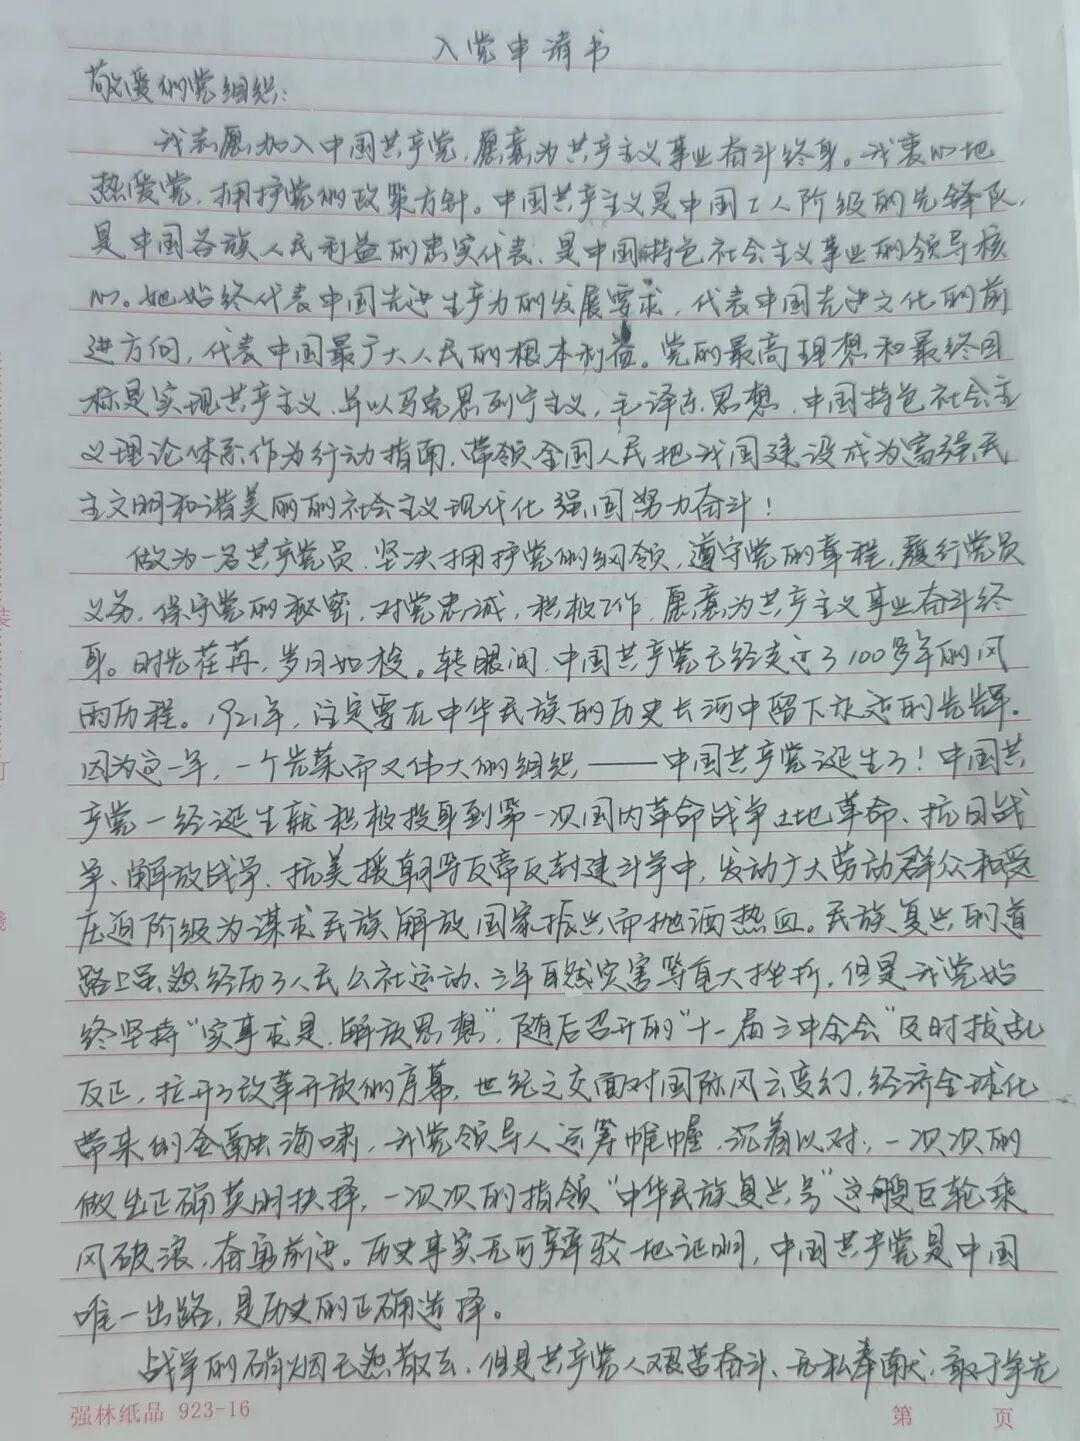 入党申请书
敬爱的党组织:
我志愿加入中国共产党,愿意为共产主义事业奋斗终身。我衷心地
热爱党,拥护党的政策方针。中国共产主义是中国工人阶级的先锋队,
是中国各族人民利益的忠实代表、是中国特色社会主义事业的领导核
心。她始终代表中国先进生产力的发展要求,代表中国先进文化的前
进方向,代表中国最广大人民的根本利益。党的最高理想和最终目
标是实现共产主义、并以马克思列宁主义,毛泽东思想、中国特色社会主
义理论体系作为行动指南、带领全国人民把我国建设成为富强民
主文明和谐美丽的社会主义现代化强国努力奋斗!
做为一名共产党员、坚决拥护党的纲领,遵守党的章程,履行党员
义务,保守党的秘密,对党忠诚,积极工作,愿意为共产主义事业奋斗终
身。时光荏苒,岁月如梭。转眼间,中国共产党已经走过了100多年的风
雨历程。1921年,注定要在中华民族的历史长河中留下的光辉。
因为这一年,一个光荣而又伟大的组织,——中国共产党诞生了!中国共
产党一经诞生就积极投身到第一次国内革命战争土地革命、抗日战
争、解放战争、抗美援朝等反帝反封建斗争中,发动广大劳动群众和受
压迫阶级为谋求民族解放国家振兴而抛洒热血。民族复兴的道
路上虽然经历了人民公社运动、三年自然灾害等重大挫折,但是我党始
终坚持“实事求是,解放思想”,随后召开的“十一届三中全会”及时拨乱
反正,拉开了改革开放的序幕,世纪之交面对国际风云变幻,经济全球化
带来的金融海啸,我党领导人运筹帷幄,沉着以对,一次次的
做出正确英明抉择,一次次的指领“中华民族复兴号”这艘巨轮乘
风破浪,奋勇前进。历史事实无可辩驳地证明,中国共产党是中国
唯一出路,是历史的正确选择。
战争的硝烟已然散去,但是共产党人艰苦奋斗、无私奉献,敢于争先
强林纸品 923-16
第 页